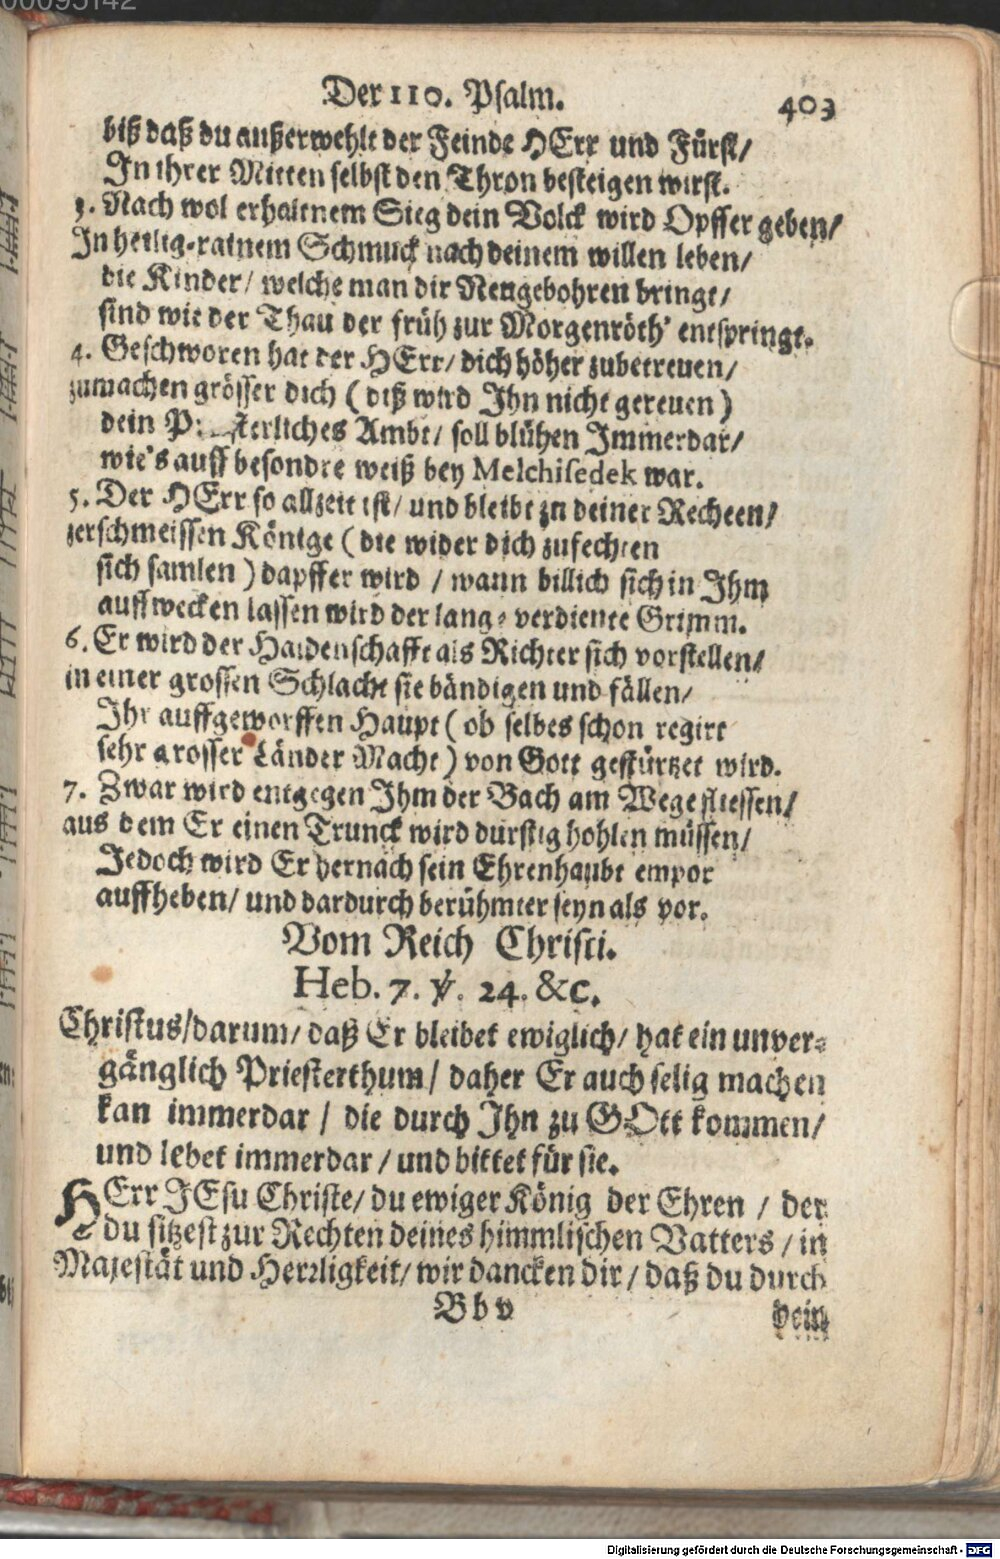 00095142
Der 110. Psalm. 403
biß daß du außerwehlt der Feinde HErr und Fürst/
In ihrer Mitten selbst den Thron besteigen wirst.
3. Nach wol erhaltnem Sieg dein Volck wird Opffer geben/
In heilig-rainem Schmuck nach deinem willen leben/
die Kinder/ welche man dir Neugebohren bringt/
sind wie der Thau der früh zur Morgenröth' entspringt.
4. Geschworen hat der HErr/ dich höher zubetreuen/
zumachen grösser dich ( diß wird Ihn nicht gereuen )
dein Priesterliches Ambt/ soll blühen Immerdar/
wie's auff besondre weiß bey Melchisedek war.
5. Der HErr so allzeit ist/ und bleibt zu deiner Rechten/
zerschmeissen Könige ( die wider dich zufechten
sich samlen ) dapffer wird / wann billich sich in Ihm
auffwecken lassen wird der lang-verdiente Grimm.
6. Er wird der Haidenschafft als Richter sich vorstellen/
in einer grossen Schlacht sie bändigen und fällen/
Ihr auffgeworffen Haupt ( ob selbes schon regirt
sehr grosser Länder Macht ) von Gott gestürtzet wird.
7. Zwar wird entgegen Ihm der Bach am Wege fliessen/
aus dem Er einen Trunck wird durstig hohlen müssen/
Jedoch wird Er hernach sein Ehrenhaubt empor
auffheben/ und dardurch berühmter seyn als vor.
Vom Reich Christi.
Heb. 7. ℣. 24. &c.
Christus/darum/ daß Er bleibet ewiglich/ hat ein unver-
gänglich Priesterthum/ daher Er auch selig machen
kan immerdar / die durch Ihn zu GOtt kommen/
und lebet immerdar / und bittet für sie.
HErr JEsu Christe/ du ewiger König der Ehren / der
du sitzest zur Rechten deines himmlischen Vatters / in
Majestät und Herrligkeit/ wir dancken dir/ daß du durch
Bb v dein
Digitalisierung gefördert durch die Deutsche Forschungsgemeinschaft - DFG